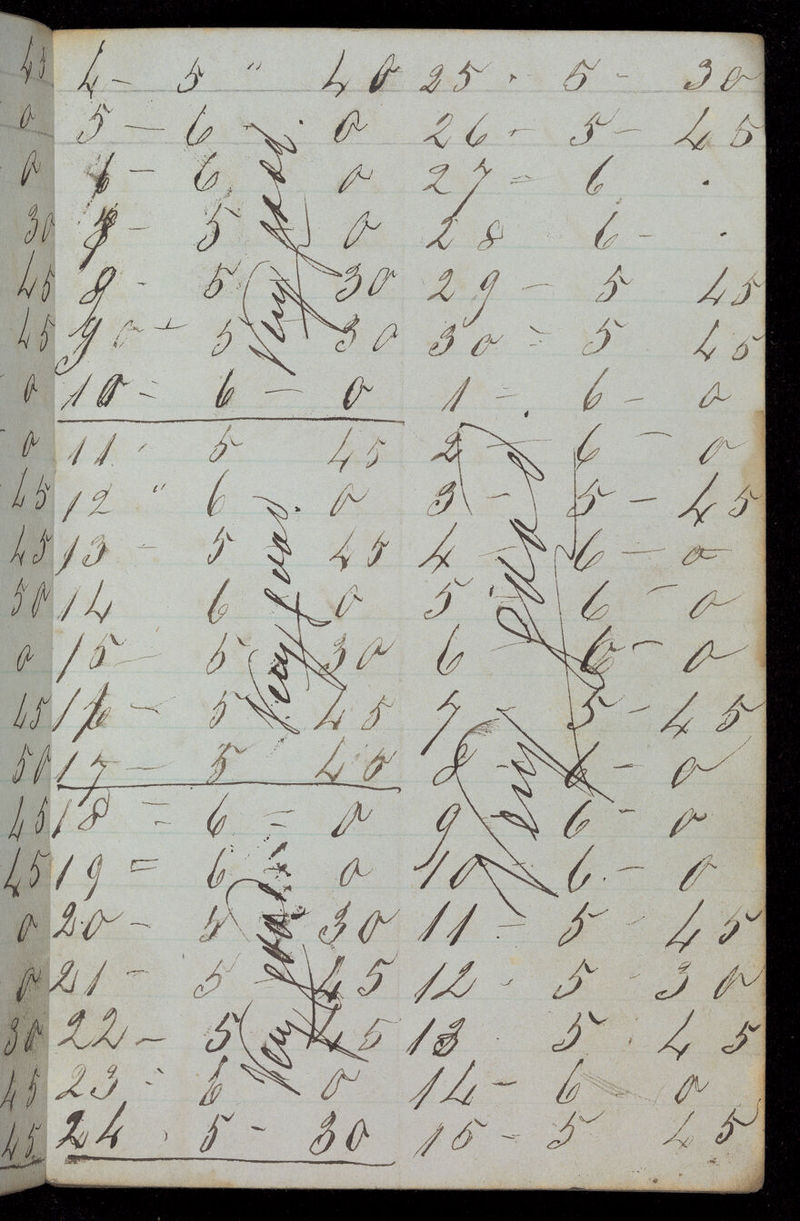 4 - 5 " 40
5 - 6 0
6 - 6 0
8 - 5 0
9 - 5 30
90 - 5 30
10 - 6 - 0
Very good.
11 - 5 45
12 " 6 0
13 - 5 45
14 6 0
15 - 5 30
16 - 5 45
17 - 5 45
Very good.
18 = 6 - 0
19 = 6 0
20 - 5 30
21 - 5 45
22 - 5 45
23 = 6 0
24 . 5 - 30
Very good.
25 . 5 - 30
26 - 5 - 45
27 - 6 .
28 6 - .
29 - 5 45
30 = 5 45
1 - . 6 - 0
2 6 - 0
3 - 5 - 45
4 - 6 - 0
5 6 - 0
6 - 6 - 0
7 5 - 45
8 - 6 - 0
9 - 6 - 0
10 - 6 - 0
Very good
11 - 5 - 45
12 . 5 . 30
13 . 5 . 45
14 - 6 0
15 - 5 45
45
0
0
30
45
45
0
0
45
45
50
0
45
50
45
45
0
0
30
45
45